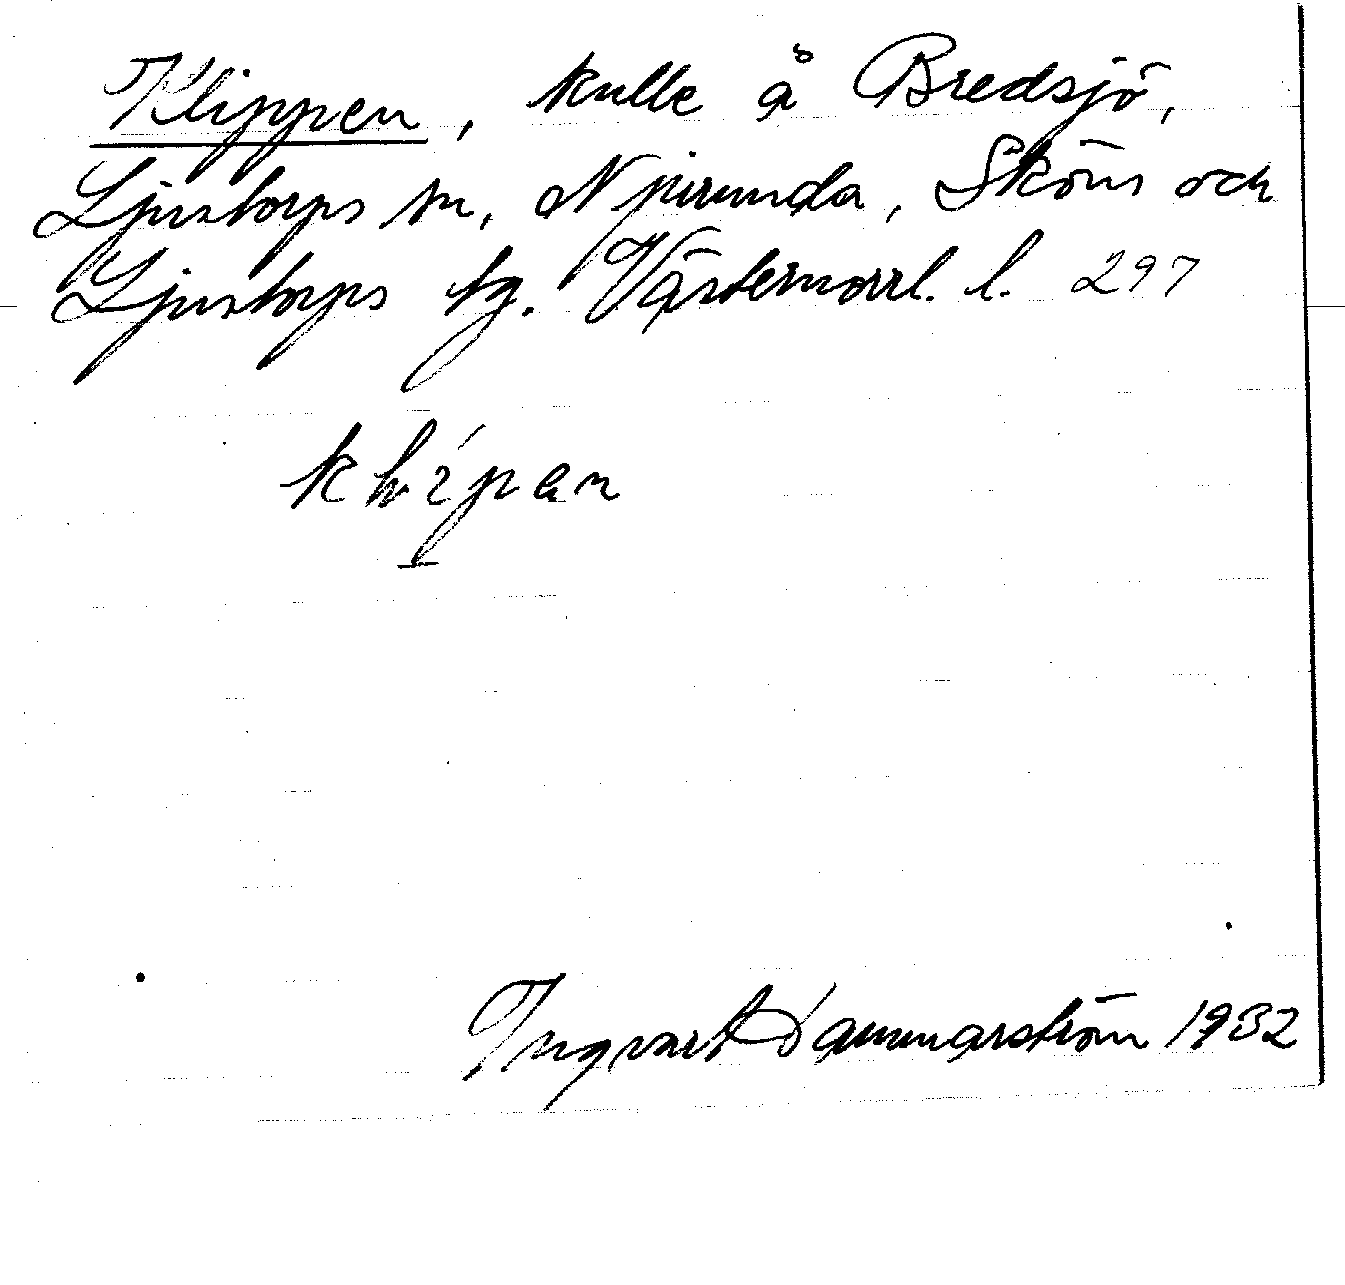 Klippen, kulle å Bredsjö,
Ljustorps sn, Njurunda, Sköns och
Ljustorps tg. Västernorrl. l. 297
Ingvart Hammarström 1932